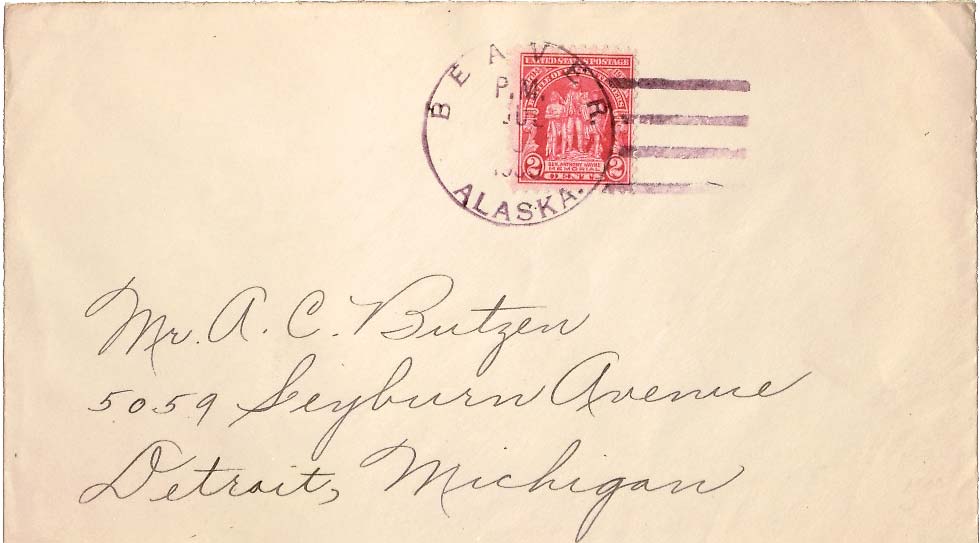 BEAVER.
P.M.
JUL
ALASKA.
UNITED STATES POSTAGE
2 2
GEN. ANTHONY WAYNE
MEMORIAL
CENTS
Mr. A. C. Butzen
5059 Seyburn Avenue
Detroit, Michigan